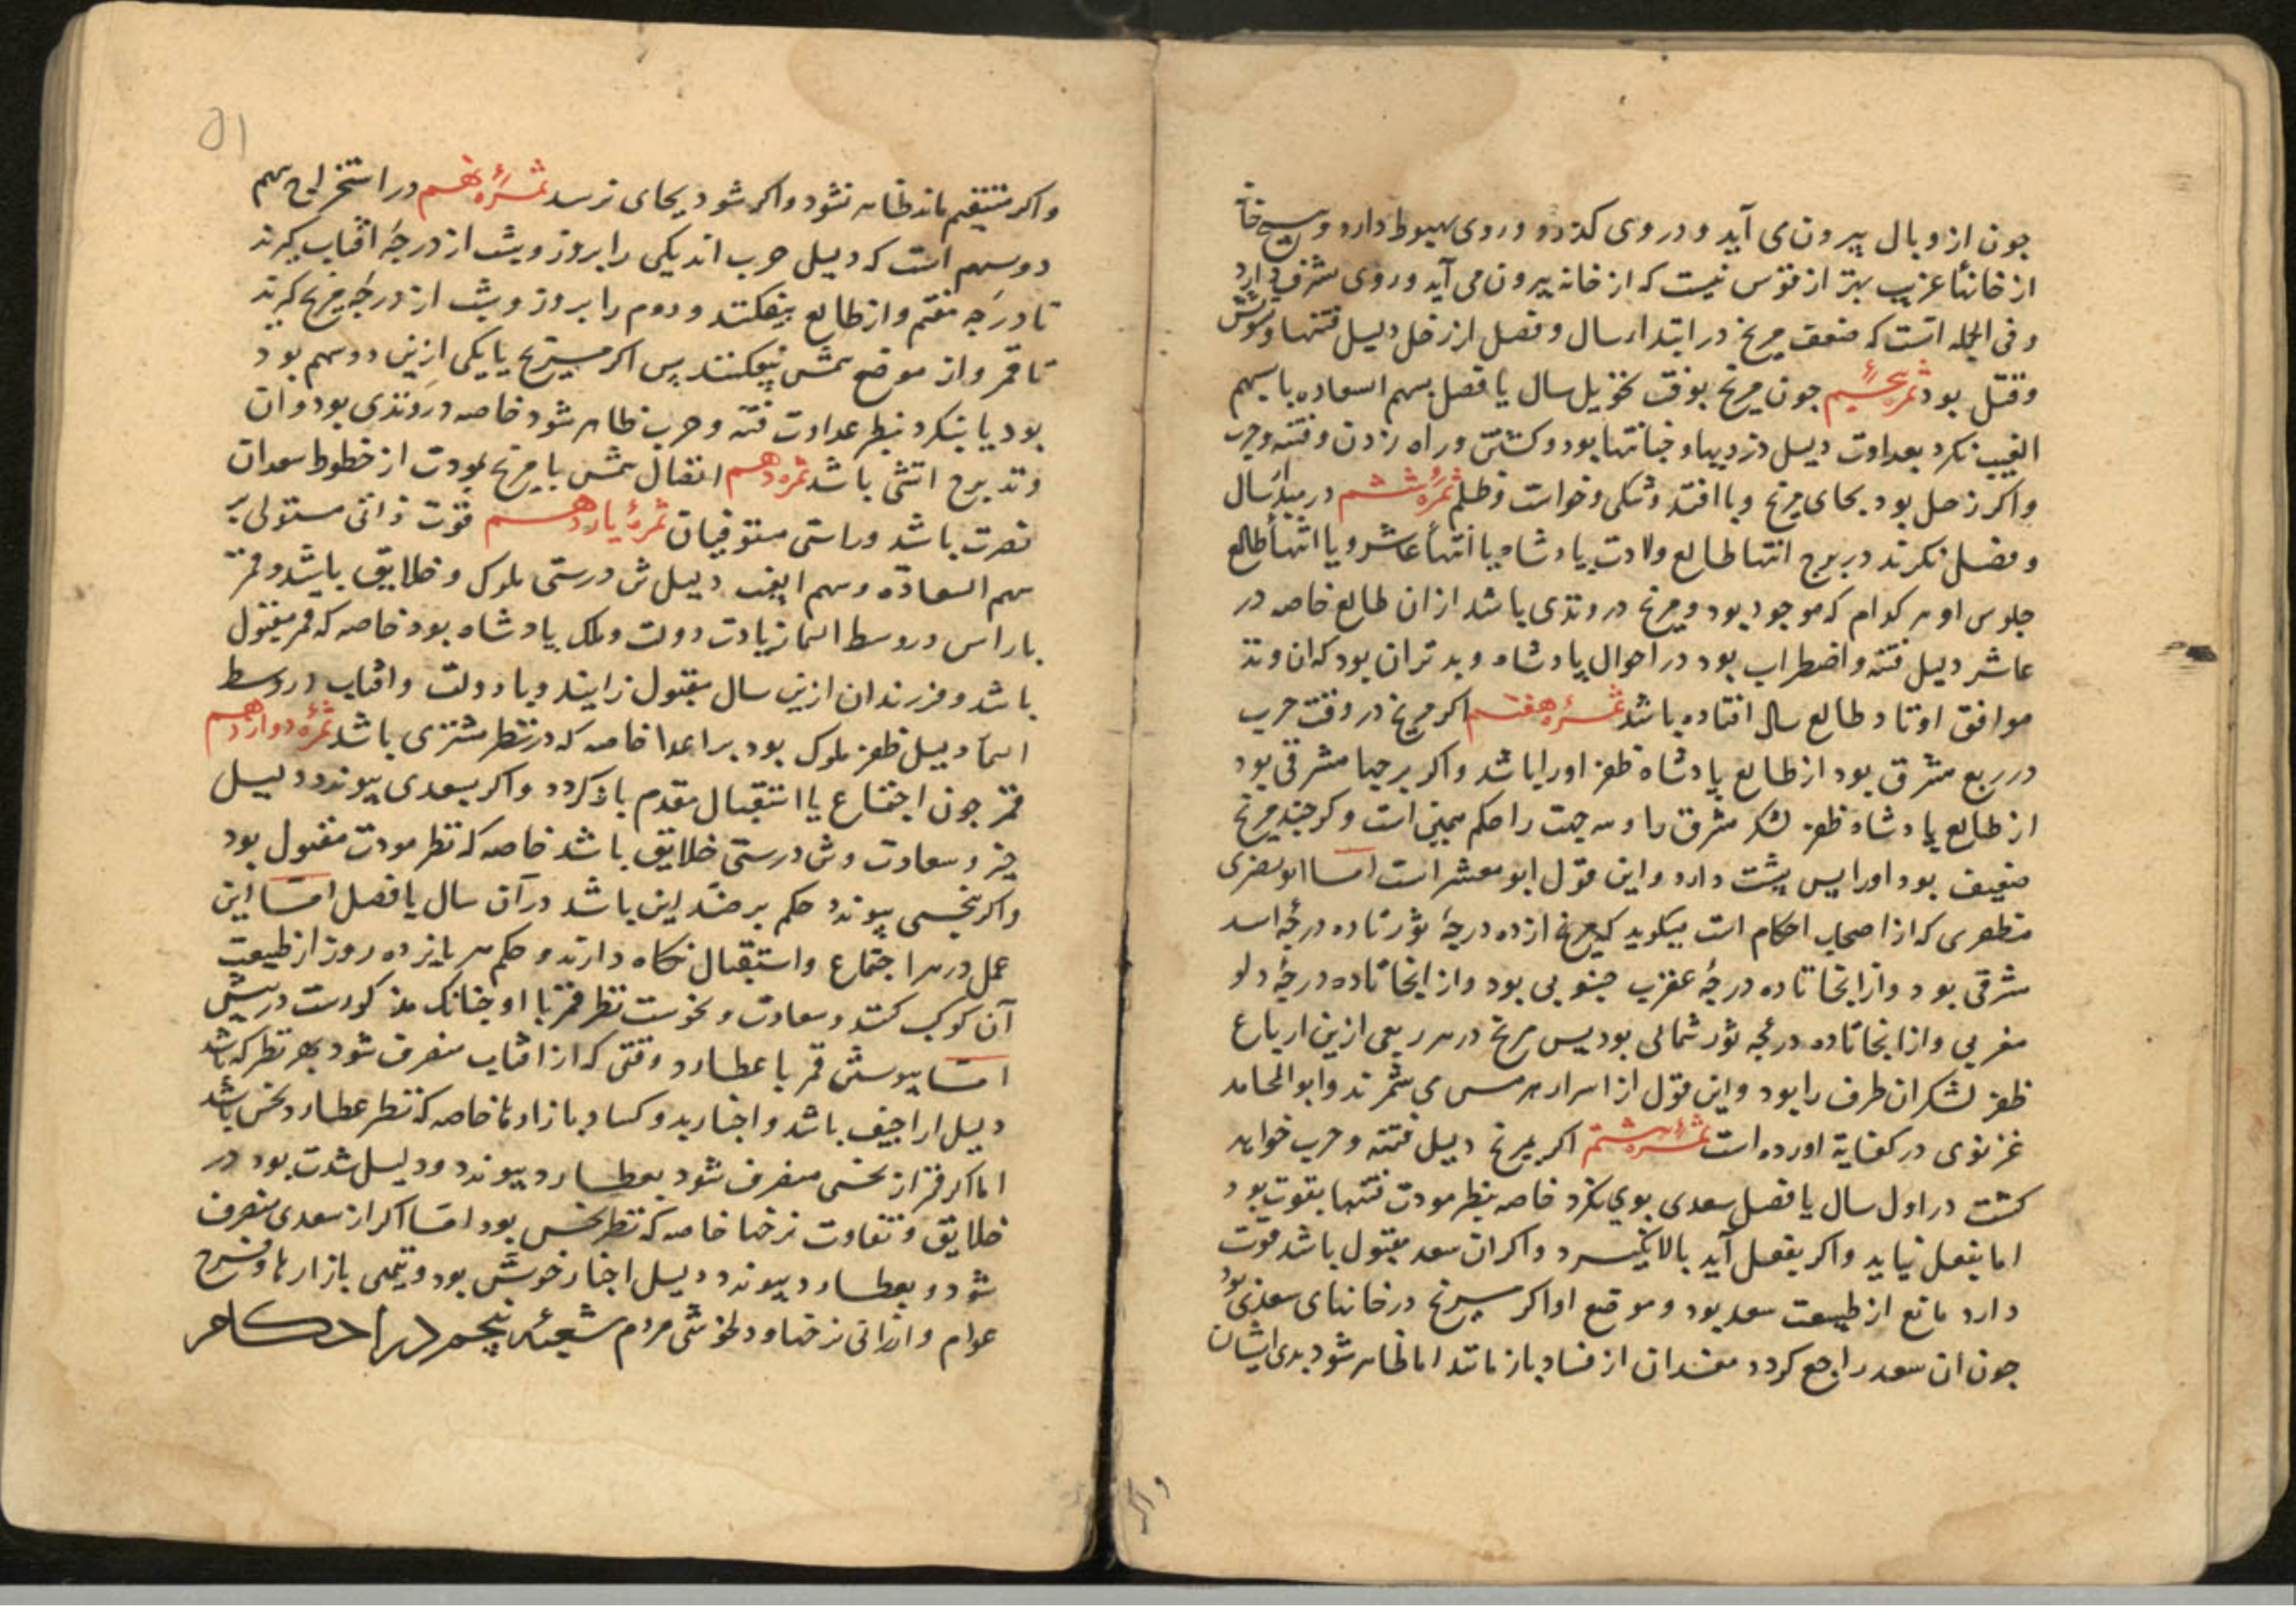 جون از وبال بیرون می آید و در وی کذر دو در وی هبوط دارد و هیچ خانه
از خانها غریب بهتر از قوس نیست که از خانه بیرون می آید و روی بشرف دارد
و فی الجمله انست که ضعف مریخ در ابتداء سال و فصل از زحل دلیل فتنها و شورش
و قتل بود ثمره پنجم جون مریخ بوقت تحویل سال یا فصل بسهم السعاده یا سهم
الغیب نکرد بعداوت دلیل دزدیها و خیانتها بود و کشتن و راه زدن و فتنه و حرب
و اکر زحل بود بجای مریخ وبا افتد و تنکی و خواست و ظلم ثمره ششم در مبدا سال
و فصل نکرند در برج انتها طالع ولادت پادشاه یا انتها عاشر و یا انتها طالع
جلوس او هر کدام که موجود بود و مریخ در وتدی باشد از ان طالع خاصه در
عاشر دلیل فتنه و اضطراب بود در احوال پادشاه و بدتر ان بود که ان وتد
موافق اوتاد طالع سال افتاده باشد ثمره هفتم اکر مریخ در وقت حرب
در ربع مشرق بود از طالع پادشاه ظفر او را باشد و اکر برجها مشرقی بود
از طالع پادشاه ظفر لشکر مشرق را و سه جهت را حکم همین است و کر چند مریخ
ضعیف بود او را پس پشت دارد و این قول ابو معشر است اما ابو نصری
منطهری که از اصحاب احکام است میکوید که مریخ از ده درجه ثور تا ده درجه اسد
شرقی بود و از انجا تا ده درجه عقرب جنوبی بود و از انجا تا ده درجه دلو
مغربی و از انجا تا ده درجه ثور شمالی بود پس مریخ در هر ربعی ازین ارباع
ظفر لشکر ان طرف را بود و این قول از اسرار هرمس می شمرند و ابو المحامد
غزنوی در کفایة اورده است ثمره هشتم اکر مریخ دلیل فتنه و حرب خواهد
کشت در اول سال یا فصل سعدی بوی نکرد خاصه بنظر مودت فتنها بقوت بود
اما بفعل نیاید و اکر بفعل آید بالا نکیرد و اکر ان سعد مقبول باشد قوت
دارد مانع از طبیعت سعد بود و موقع او اکر مریخ در خانهای سعدی بود
جون ان سعد راجع کردد مفسدان از فساد باز مانند اما ظاهر شود بدی ایشان
و اکر
۵۱
و اکر مستقیم ماند ظاهر نشود و اکر شود بجای نرسد ثمره نهم در استخراج سهم
دو سهم است که دلیل حرب اند یکی را بروز و بشب از درجه افتاب کیرند
تا درجه هفتم و از طالع بیفکنند و دوم را بروز و بشب از درجه مریخ کیرند
تا قمر و از موضع شمس بیفکنند پس اکر مریخ با یکی ازین دو سهم بود
بود یا بنکرد بنظر عداوت فتنه و حرب ظاهر شود خاصه در وتدی بود و ان
وتد برج اتشی باشد ثمره دهم اتصال شمس با مریخ بمودت از خطوط سعدان
نصرت باشد و راستی مستوفیان ثمره یازدهم قوت ذاتی مستولی بر
سهم السعاده و سهم الغیب دلیل تن درستی ملوک و خلایق باشد و قمر
با راس در وسط السما زیادت دولت و ملک پادشاه بود خاصه که قمر مقبول
باشد و فرزندان ازین سال مقبول زایند و با دولت و افتاب در وسط
السما دلیل ظفر ملوک بود بر اعدا خاصه که در نظر مشتری باشد ثمره دوازدهم
قمر جون اجتماع یا استقبال مقدم باز کردد و اکر بسعدی پیوندد دلیل
خیر و سعادت و تن درستی خلایق باشد خاصه که نظر مودت مقبول بود
و اکر بنحسی پیوندد حکم بر ضد این باشد در آن سال یا فصل اما این
عمل در هر اجتماع و استقبال نکاه دارند و حکم هر پانزده روز از طبیعت
آن کوکب کنند و سعادت و نحوست نظر قمر با او جنانک مذکورست در پیش
اما پیوستن قمر با عطارد وقتی که از افتاب منصرف شود بهر نظر که باشد
دلیل اراجیف باشد و اخبار بد و کساد بازارها خاصه که نظر عطارد نحس باشد
اما اکر قمر از نحسی منصرف شود بعطارد پیوندد دلیل شدت بود در
خلایق و تفاوت نرخها خاصه که نظر نحس بود اما اکر از سعدی منصرف
شود و بعطارد پیوندد دلیل اخبار خوش بود و تیمی بازارها و فرح
عوام و ارزانی نرخها و دلخوشی مردم شعبه پنجم در احکام